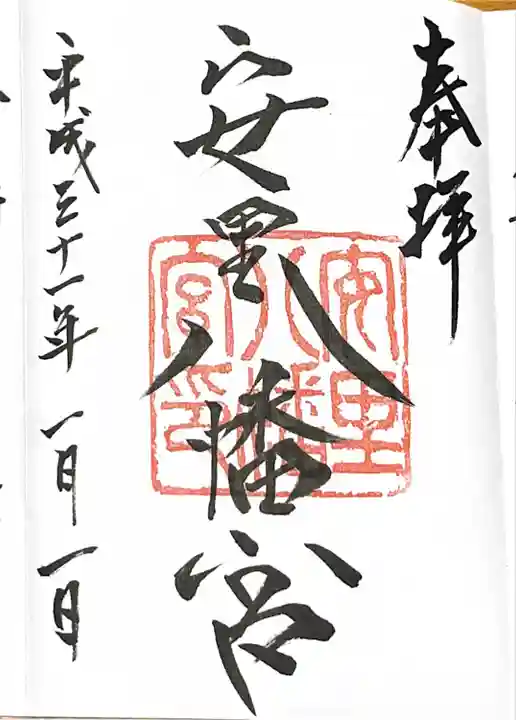 奉拝
安里八幡宮
安里
八幡
宮印
平成三十一年 一月一日